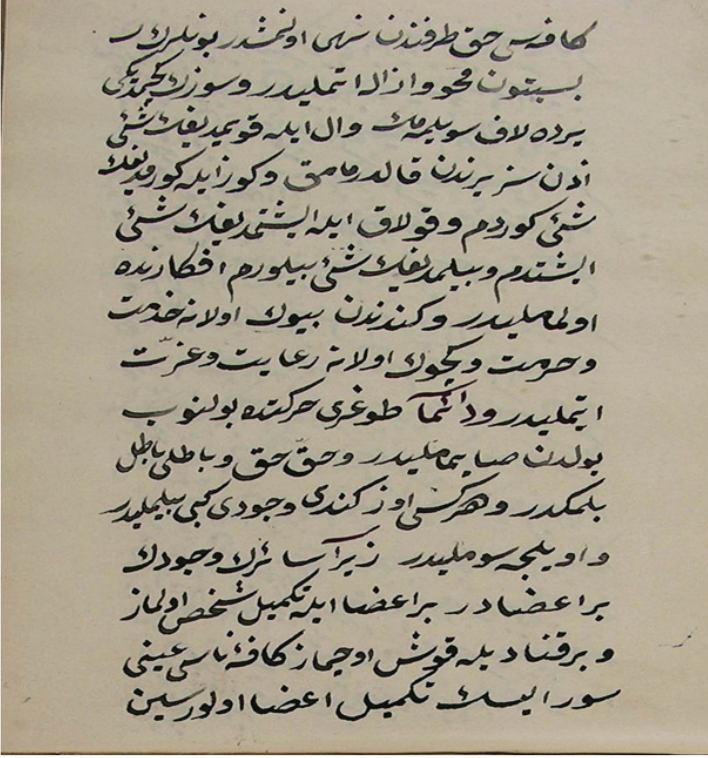 كافه‌سى حق طرفندن نهى اولنمشدر بونلرك
بسبتون محو و ازاله اتمليدر و سوزك كچمديكى
يرده لاف سويلمه‌مك و ال ايله قويمديغك شئى
اذن سز يرندن قالدرمامق و كوز ايله كورمديغك
شئى كوردم و قولاق ايله ايشتمديغك شئى
ايشتدم و بيلمديغك شئى بيلورم افكارنده
اولماملیدر و كندندن بيوك اولانه خدمت
و حرمت و كچوك اولانه رعايت و عزّت
ايتمليدر و دائماً طوغرى حركتده بولنوب
يولدن صاپماملیدر و حقّ حق و باطلى باطل
بلمكدر و هركسى اوز كندى وجودى كبى بيلمليدر
و اويلجه سومليدر زيرا سائرك وجودك
بر اعضادر بر اعضا ايله تكميل شخص اولماز
و بر قناد يله قوش اوچماز كافهٔ ناسى عينى
سور ايسك تكميل اعضا اولورسين